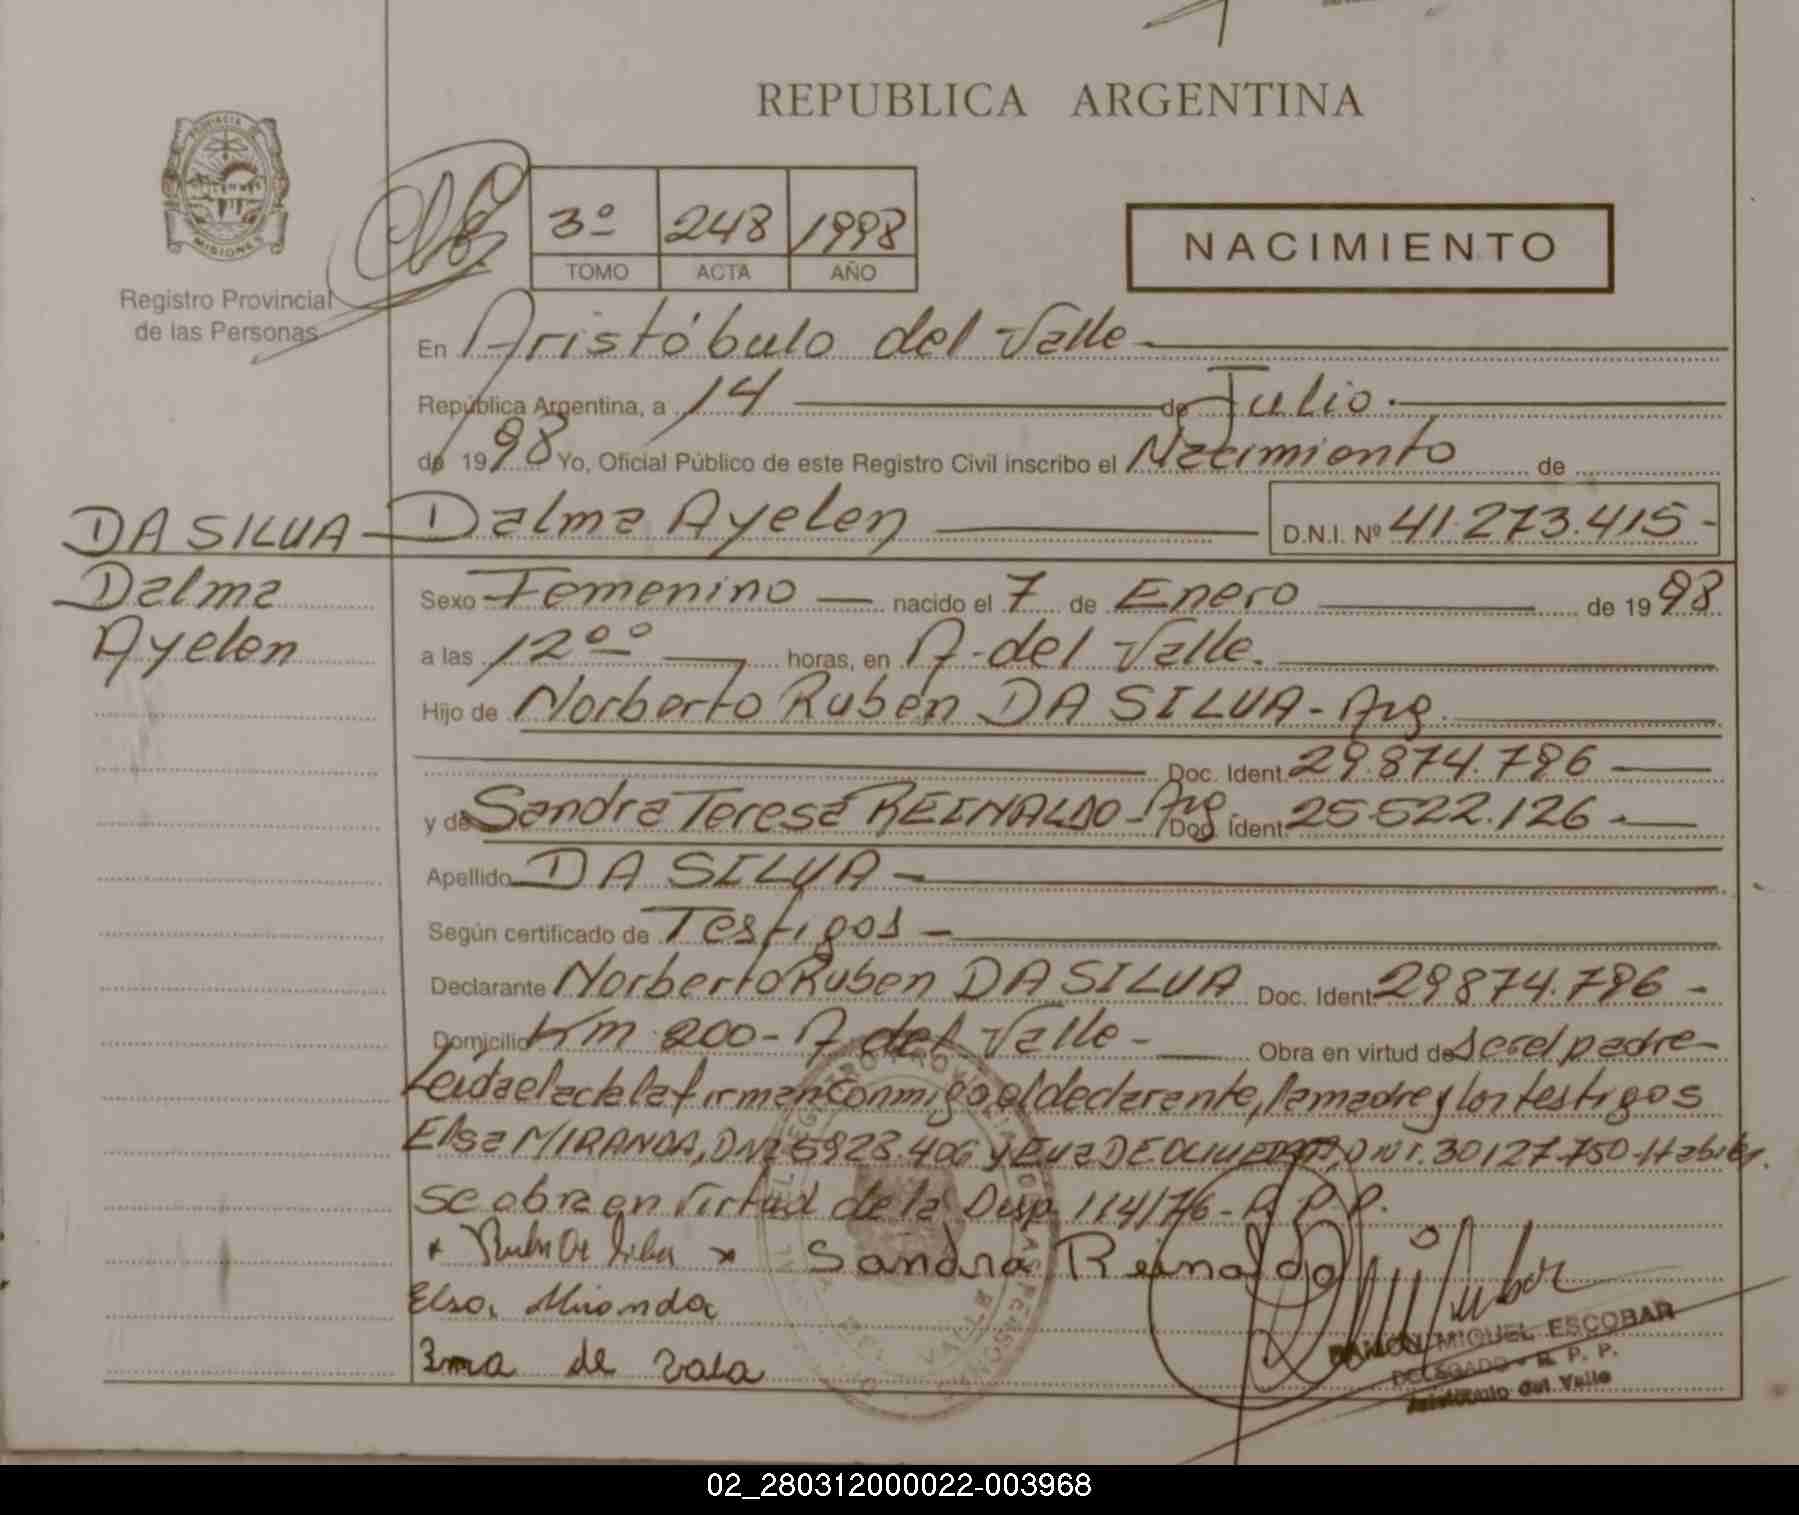 REPUBLICA ARGENTINA
PROVINCIA DE
MISIONES
Registro Provincial
de las Personas
3º 248 1998
TOMO ACTA AÑO
NACIMIENTO
En Aristóbulo del Valle
República Argentina, a 14 de Julio.
de 1998 Yo, Oficial Público de este Registro Civil inscribo el Nacimiento de
DA SILVA Dalma Ayelen D.N.I. Nº 41.273.415-
Dalma
Ayelen
Sexo Femenino nacido el 7 de Enero de 1998
a las 12ºº horas, en A. del Valle.
Hijo de Norberto Ruben DA SILVA - Arg.
Doc. Ident. 29.874.796
y de Sandra Teresa REINALDO - Arg. Doc. Ident. 25.522.126.-
Apellido DA SILVA -
Según certificado de Testigos -
Declarante Norberto Ruben DA SILVA Doc. Ident. 29874.796 -
Domicilio Km. 200 - A. del Valle - Obra en virtud de ser el padre
Leida el acta la firman conmigo el declarante, la madre y los testigos
Elsa MIRANDA, DNI 5923.406 y Eva DE DNI. 30127.750
se obra en virtud de la Disp. 114/76 - R. P. P.
Sandra Reinaldo
Elsa Miranda
de
RAMON MIGUEL ESCOBAR
DELEGADO - R. P. P.
Aristobulo del Valle
02_280312000022-003968